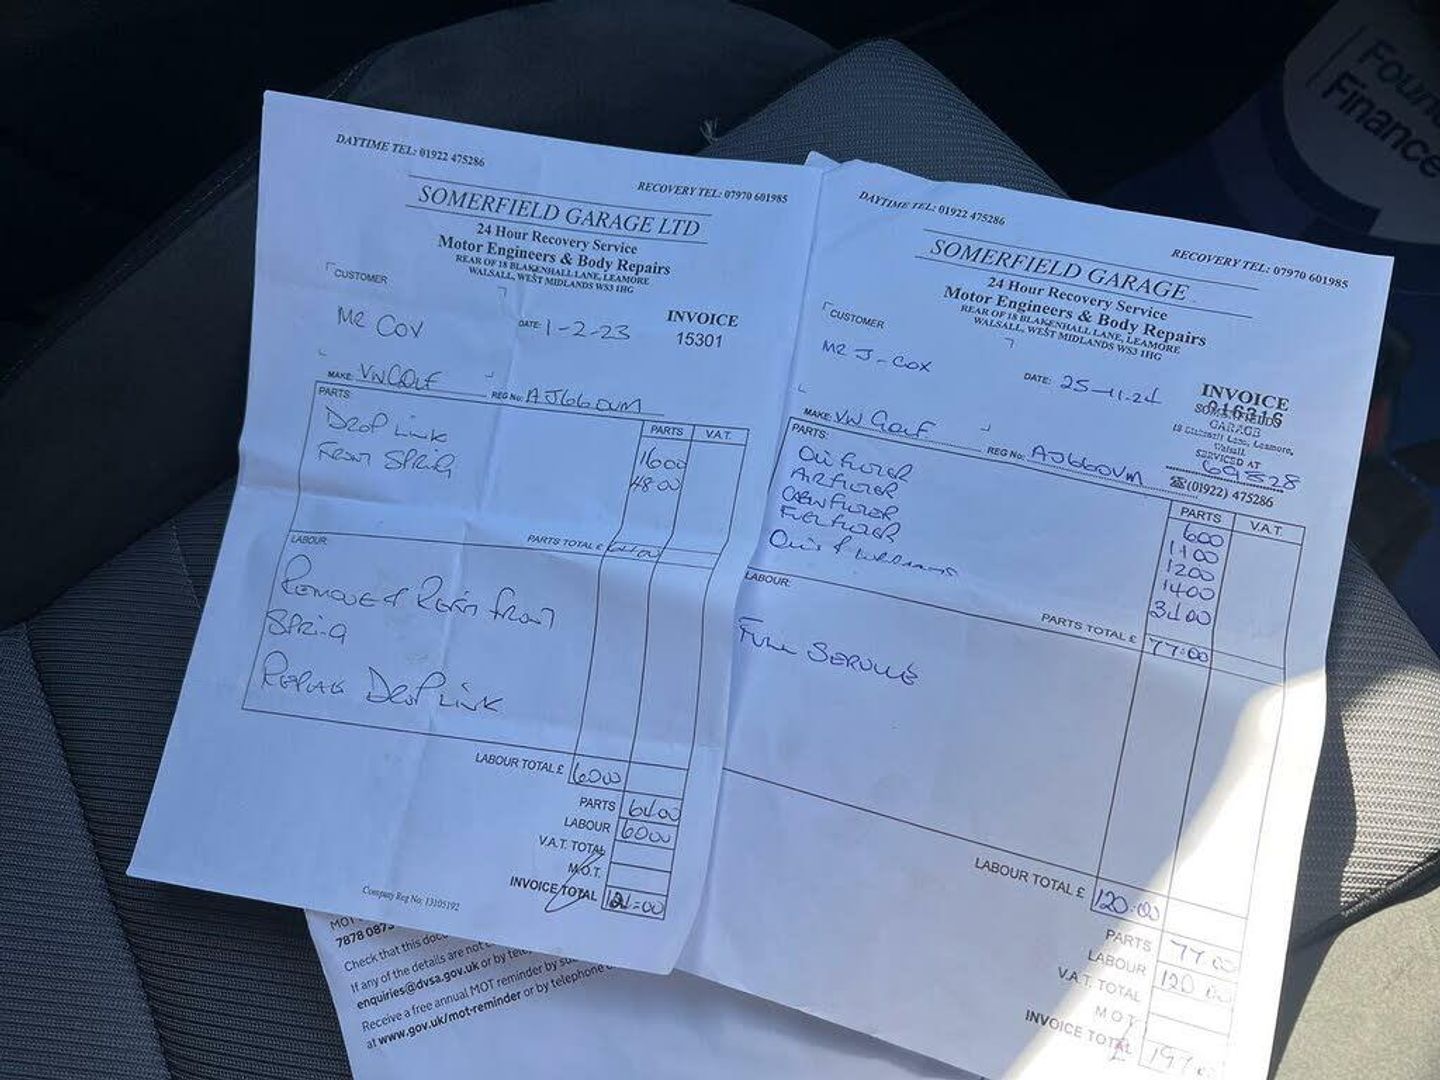 DAYTIME TEL: 01922 475286
RECOVERY TEL: 07970 601985
SOMERFIELD GARAGE LTD
24 Hour Recovery Service
Motor Engineers & Body Repairs
REAR OF 18 BLAKENHALL LANE, LEAMORE
WALSALL, WEST MIDLANDS WS3 1HG
CUSTOMER
MR COX
DATE: 1-2-23
INVOICE
15301
MAKE: VW GOLF
REG No: AJ66OVM
PARTS:
PARTS
V.A.T.
DROP LINK 16 00
FRONT SPRING 48 00
PARTS TOTAL £ 64 00
LABOUR:
REMOVE & REFIT FRONT
SPRING
REPLACE DROP LINK
LABOUR TOTAL £ 60 00
PARTS 64 00
LABOUR 60 00
V.A.T. TOTAL
M.O.T.
INVOICE TOTAL 124=00
Company Reg No: 13105192
DAYTIME TEL: 01922 475286
RECOVERY TEL: 07970 601985
SOMERFIELD GARAGE
24 Hour Recovery Service
Motor Engineers & Body Repairs
REAR OF 18 BLAKENHALL LANE, LEAMORE
WALSALL, WEST MIDLANDS WS3 1HG
CUSTOMER
MR J - COX
DATE: 25-11-24
INVOICE
GARAGE
Walsall.
SERVICED AT
69528
☎(01922) 475286
MAKE: VW GOLF
REG No: AJ66OVM
PARTS:
PARTS
V.A.T.
OIL FILTER 6 00
AIR FILTER 11 00
CABIN FILTER 12 00
FUEL FILTER 14 00
34 00
PARTS TOTAL £ 77:00
LABOUR:
FULL SERVICE
LABOUR TOTAL £ 120:00
PARTS 77 00
LABOUR 120 00
V.A.T. TOTAL
M O T
INVOICE TOTAL 197
MOT
Check that this
If any of the details are not
enquiries@dvsa.gov.uk or by
Receive a free annual MOT reminder by
at www.gov.uk/mot-reminder or by telephone
Finance